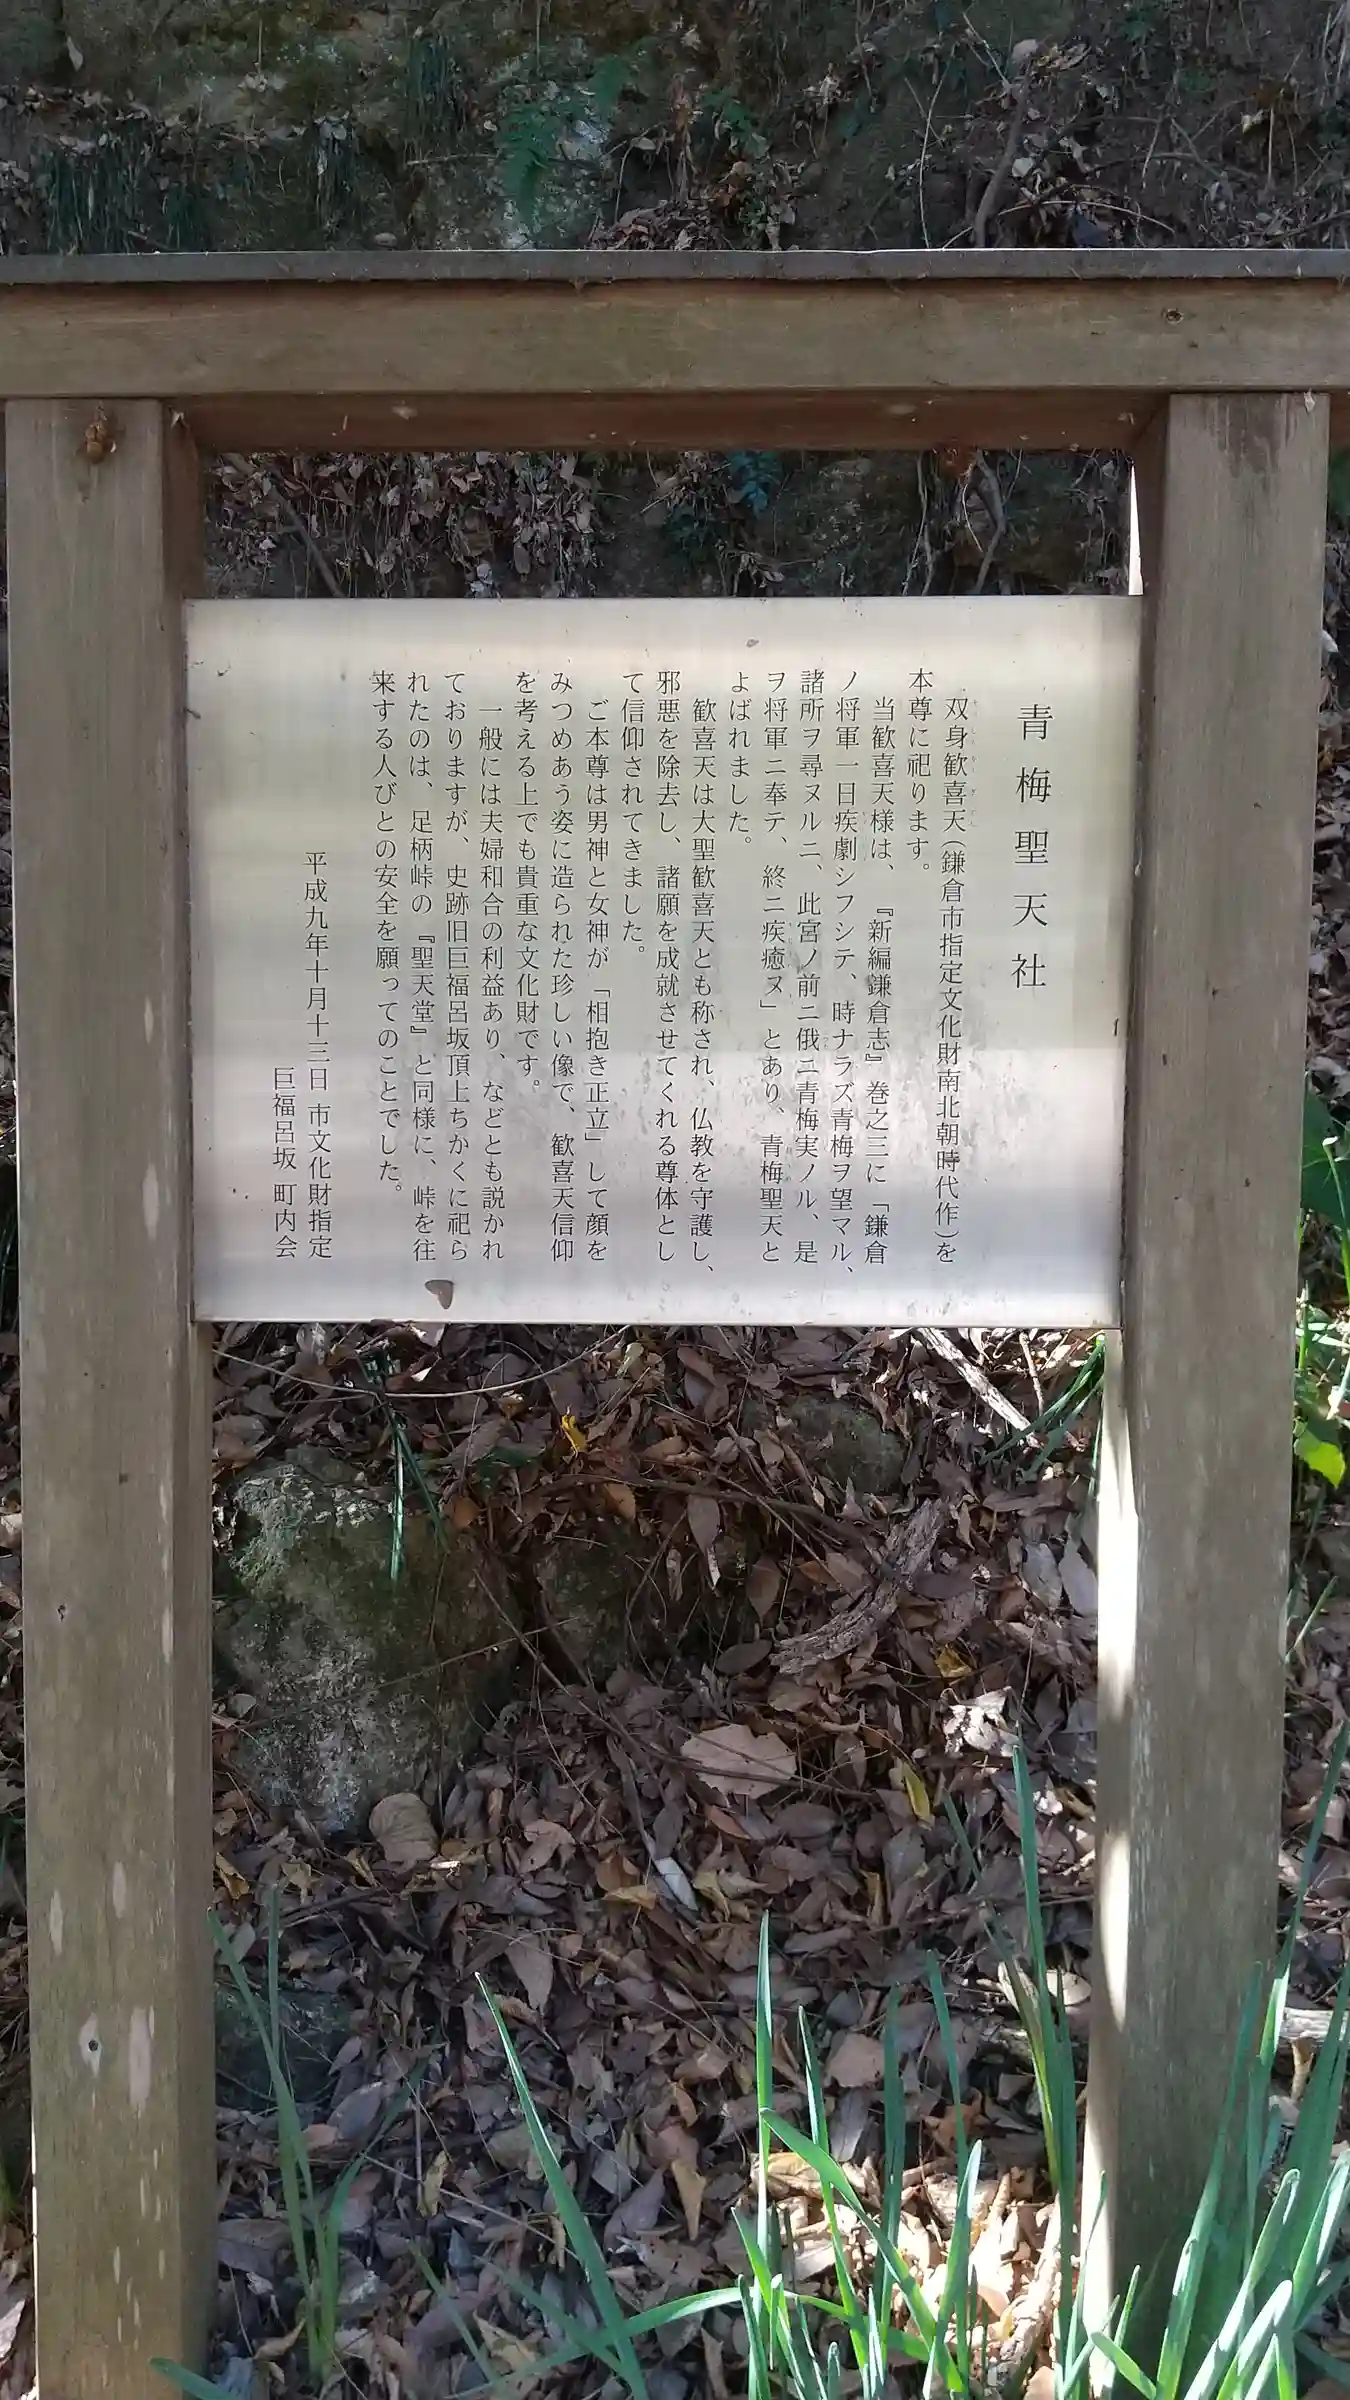 青梅聖天社
双身歓喜天(鎌倉市指定文化財南北朝時代作)を
本尊に祀ります。
当歓喜天様は、『新編鎌倉志』巻之三に「鎌倉
ノ将軍一日疾劇シフシテ、時ナラズ青梅ヲ望マル、
諸所ヲ尋ヌルニ、此宮ノ前ニ俄ニ青梅実ノル、是
ヲ将軍ニ奉テ、終ニ疾癒ヌ」とあり、青梅聖天と
よばれました。
歓喜天は大聖歓喜天とも称され、仏教を守護し、
邪悪を除去し、諸願を成就させてくれる尊体とし
て信仰されてきました。
ご本尊は男神と女神が「相抱き正立」して顔を
みつめあう姿に造られた珍しい像で、歓喜天信仰
を考える上でも貴重な文化財です。
一般には夫婦和合の利益あり、などとも説かれ
ておりますが、史跡旧巨福呂坂頂上ちかくに祀ら
れたのは、足柄峠の『聖天堂』と同様に、峠を往
来する人びとの安全を願ってのことでした。
平成九年十月十三日 市文化財指定
巨福呂坂 町内会